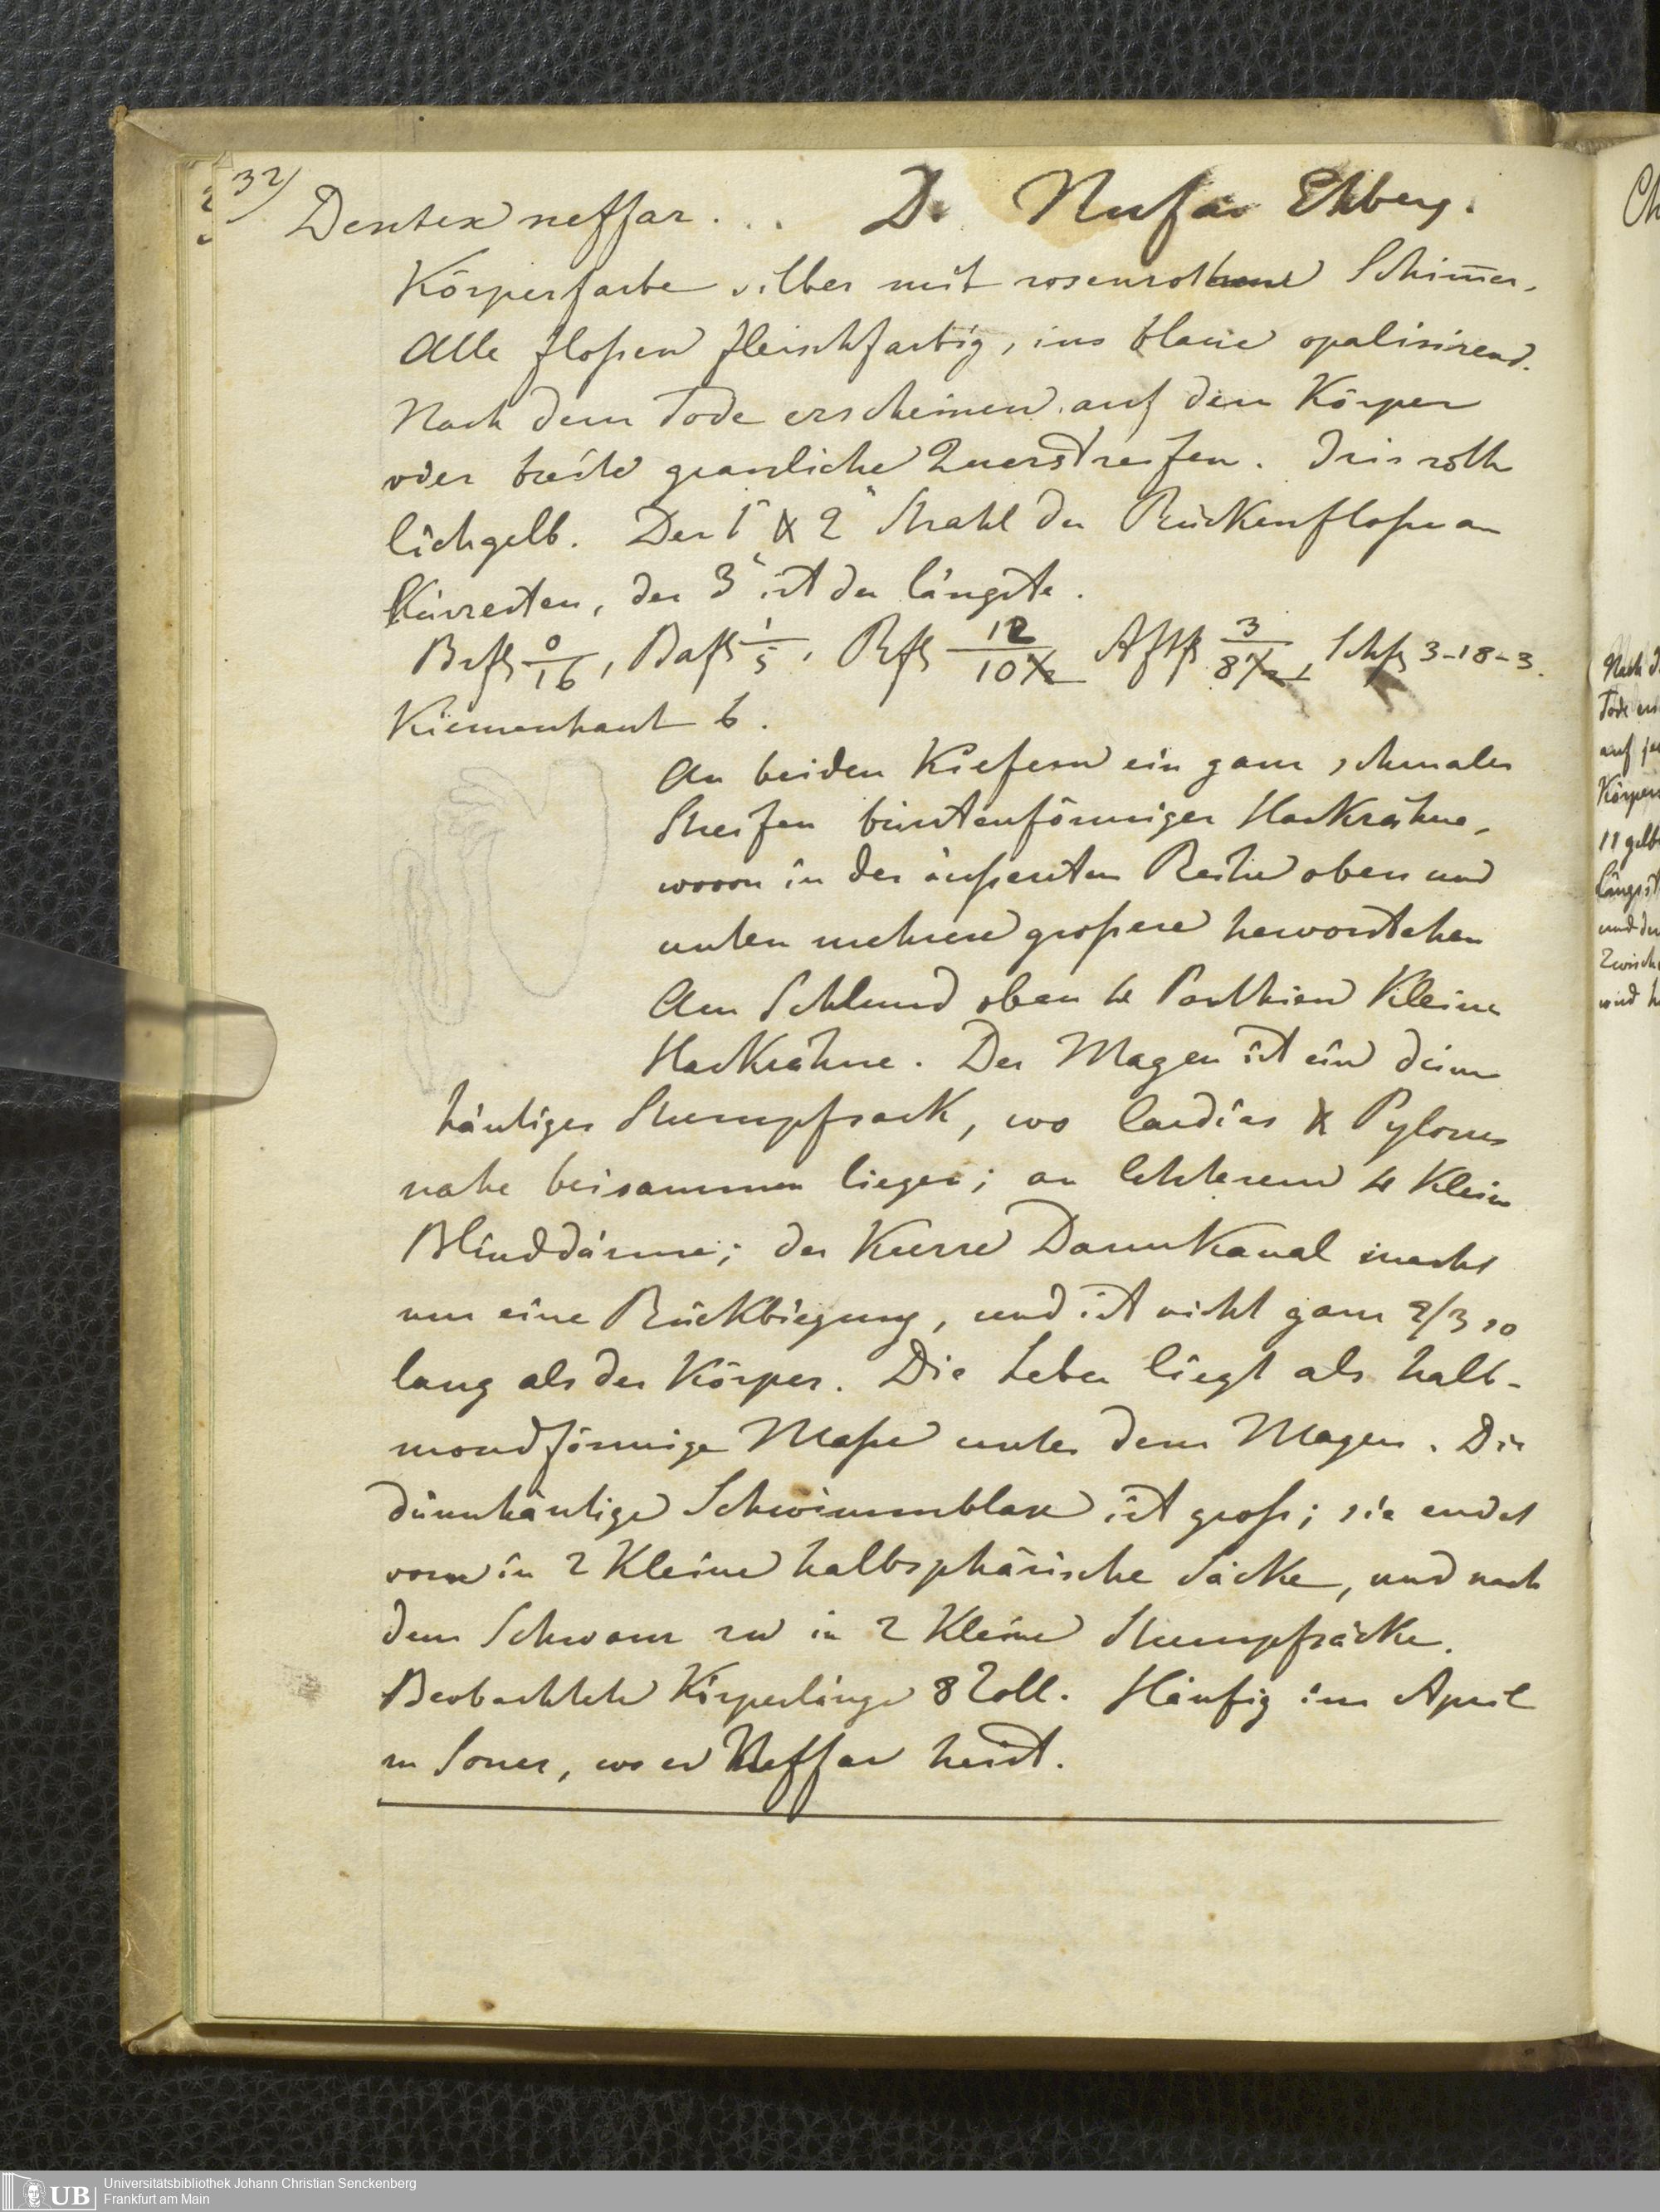 32)
Dentex neffar . . . D. Nufar Ehberg.
Körperfarbe silber mit rosenrothem Schim̄er.
Alle floßen fleischfarbig, ins blaue opalisirend.
Nach dem Tode erscheinen auf dem Körper
vier breite grauliche Querstreifen. Iris röth
lichgelb. Der 1 & 2 Strahl der Rückenfloße am
Kürzesten, der 3 ist der längste.
Brfß 0/16, Bafß 1/5, Rfß 12/10 Aftfß 3/8, Schfß 3-18-3.
Kiemenhaut 6.
An beiden Kiefern ein ganz schmaler
Streifen bürstenförmiger Hackzähne,
wovon in der äußersten Reihe oben und
unten mehrere großere hervorstehen
Am Schlund oben 4 Parthien Kleine
Hackzähne. Der Magen ist ein dünn
häutiger Stumpfsack, wo Cardias & Pylorus
nahe beisammen liegen; an letzterem 4 Klein
Blinddärme; der Kurze Darmkanal macht
nur eine Rückbiegung, und ist nicht ganz 2/3 so
lang als der Körper. Die Leber liegt als halb-
mondförmige Maße unter dem Magen. Die
dünnhäutige Schwimmblase ist groß; sie endet
vorn in 2 Kleine halbsphärische Säcke, und nach
dem Schwanz zu in 2 Kleine Stumpfsäcke.
Beobachtete Körperlänge 8 Zoll. Häufig im April
in Souer, wo er Neffar heist.
Ch
Nach d
Tode er
auf je
Körper
11 gelb
längst
und de
Zwisch
wird h
UB
Universitätsbibliothek Johann Christian Senckenberg
Frankfurt am Main